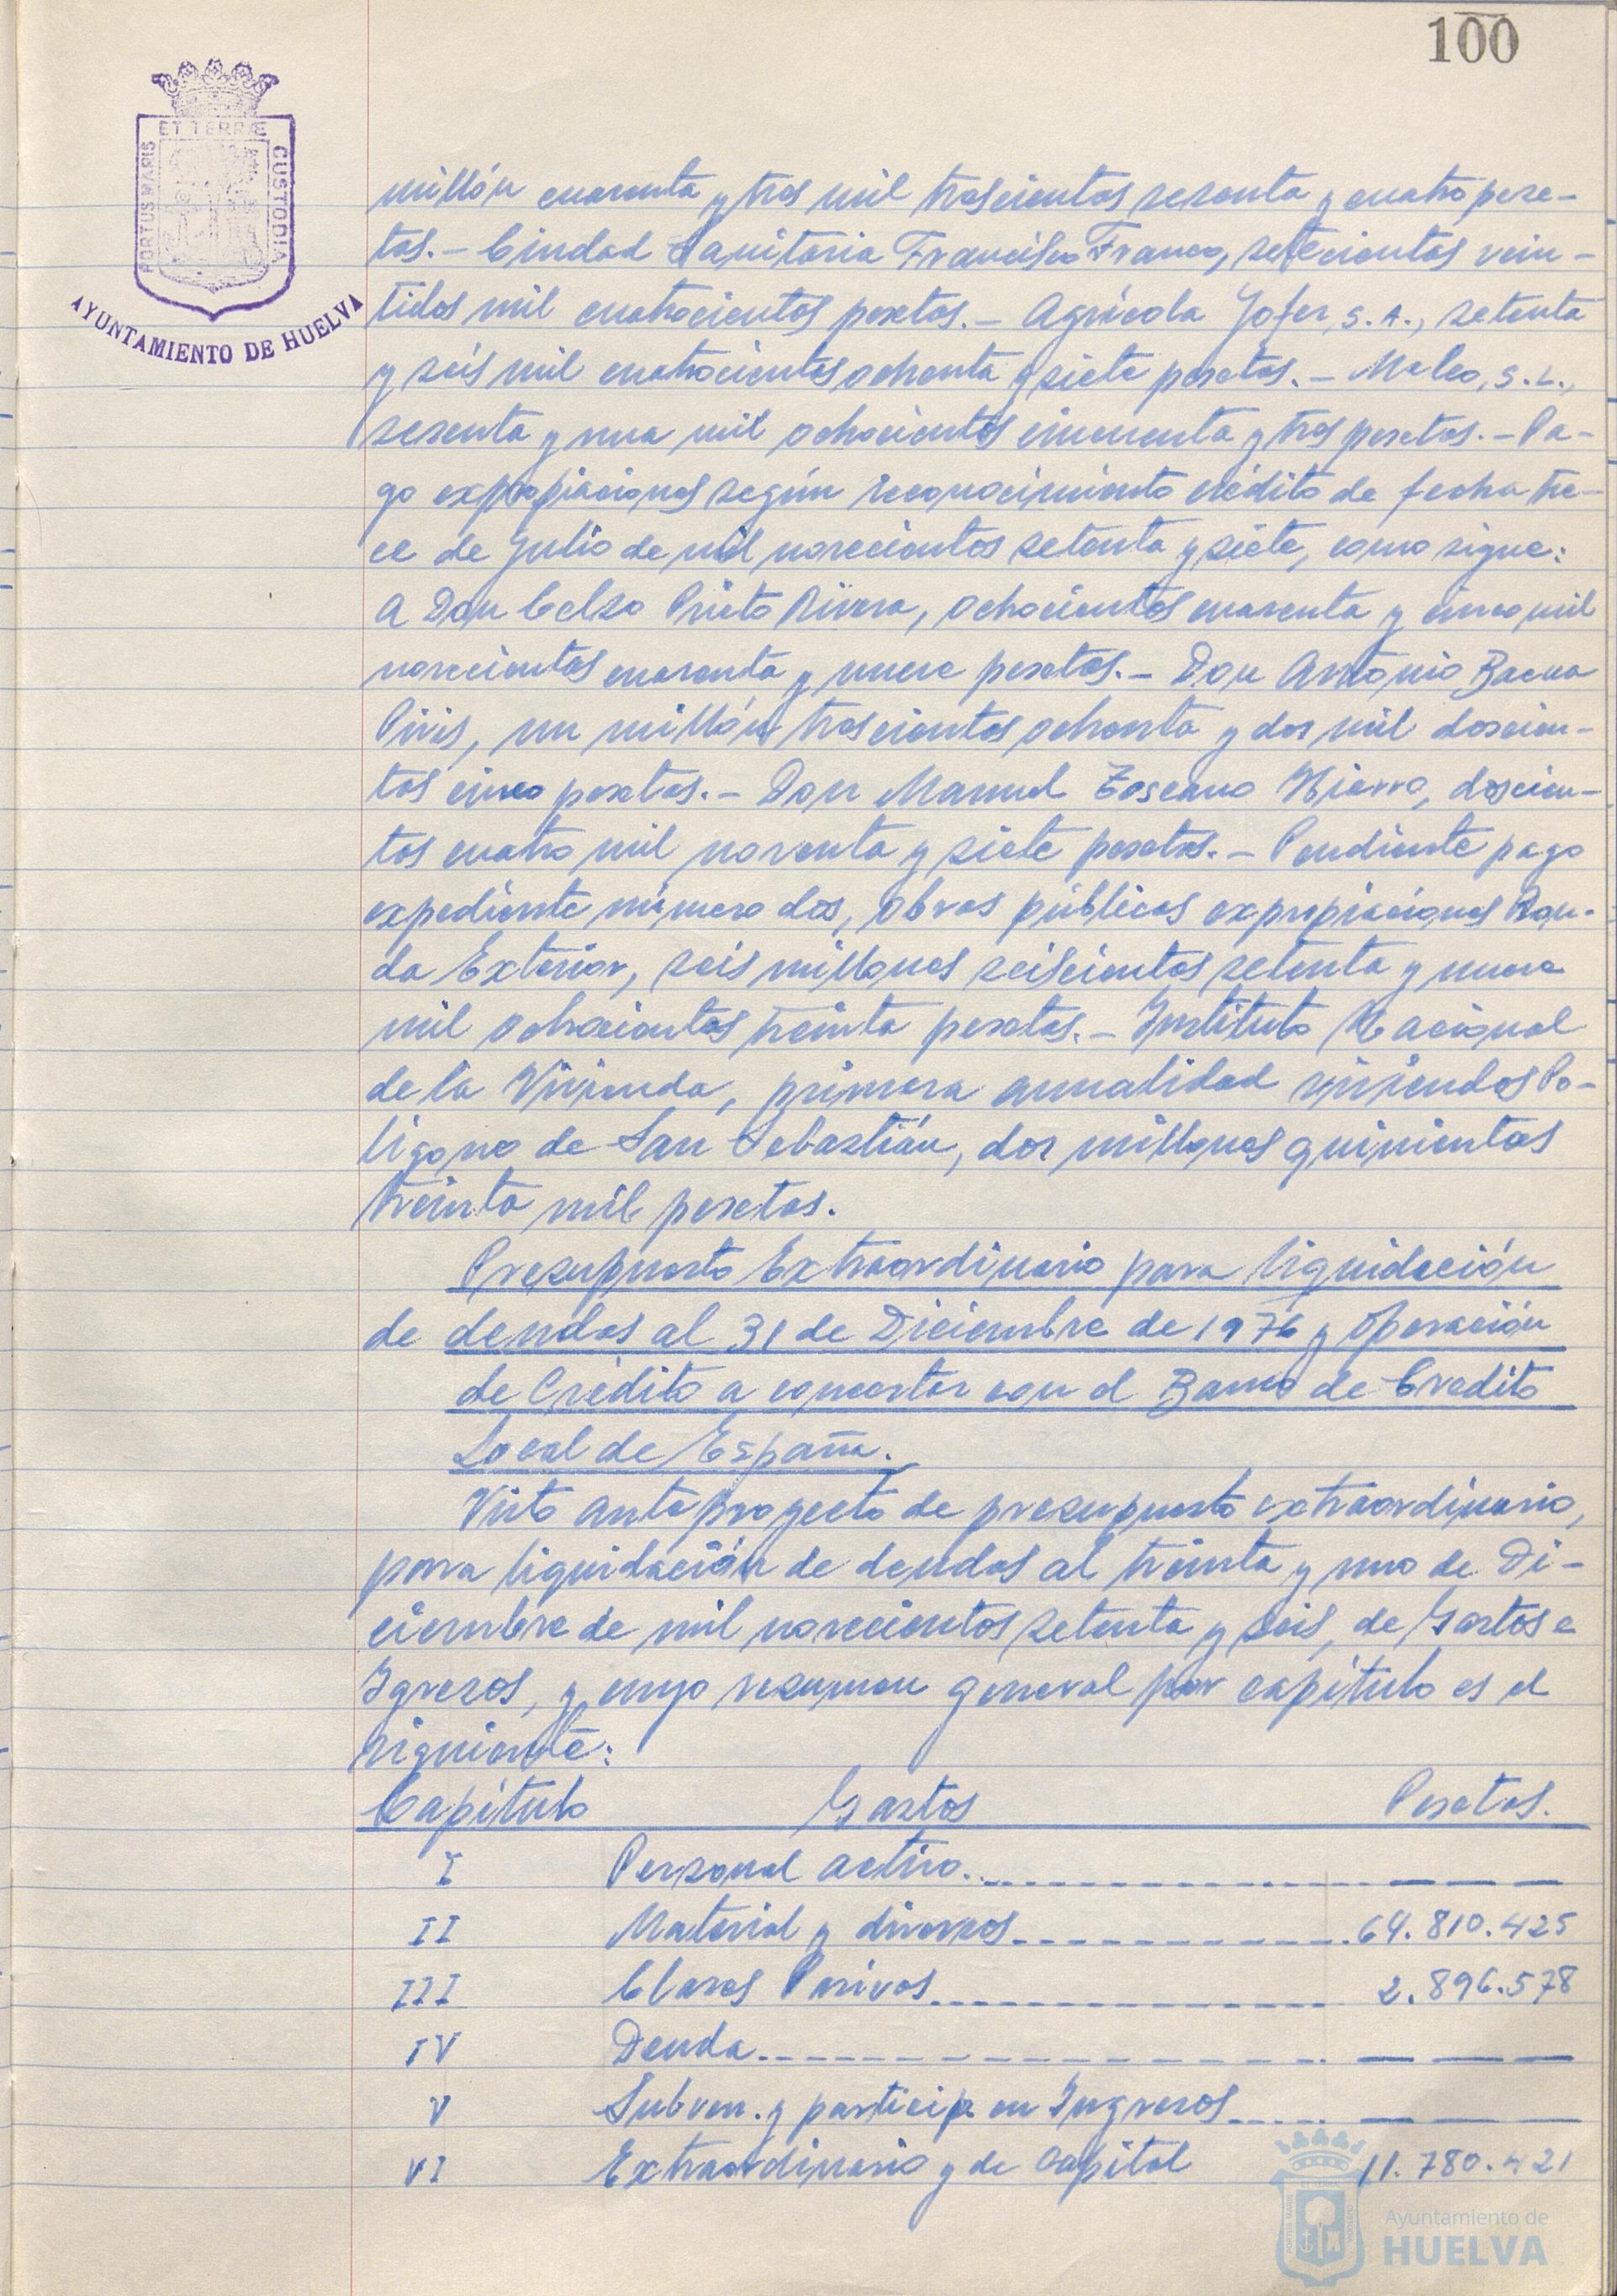 100
ET TERRÆ
PORTUS MARIS
CUSTODIA
AYUNTAMIENTO DE HUELVA
millón cuarenta y tres mil trescientas sesenta y cuatro pese-
tas.- Ciudad Sanitaria Francisco Franco, setecientas vein-
tidos mil cuatrocientas pesetas.- Agrícola Yofer, S.A., setenta
y seis mil cuatrocientas ochenta y siete pesetas.- Maleo, S.L.,
sesenta y una mil ochocientas cincuenta y tres pesetas.- Pa-
go expropiaciones según reconocimiento crédito de fecha tre-
ce de Julio de mil novecientos setenta y siete, como sigue:
A Don Celso Prieto Rivera, ochocientas cuarenta y cinco mil
novecientas cuarenta y nueve pesetas.- Don Antonio Baena
Piris, un millón trescientas ochenta y dos mil doscien-
tas cinco pesetas.- Don Manuel Toscano Hierro, doscien-
tas cuatro mil noventa y siete pesetas.- Pendiente pago
expediente número dos, obras públicas expropiaciones Ron-
da Exterior, seis millones seiscientas setenta y nueve
mil ochocientas treinta pesetas.- Instituto Nacional
de la Vivienda, primera anualidad viviendas Po-
lígono de San Sebastián, dos millones quinientas
treinta mil pesetas.
Presupuesto Extraordinario para liquidación
de deudas al 31 de Diciembre de 1976 y Operación
de Crédito a concertar con el Banco de Credito
Local de España.
Visto anteproyecto de presupuesto extraordinario,
para liquidación de deudas al treinta y uno de Di-
ciembre de mil novecientos setenta y seis, de Gastos e
Igresos, y cuyo resumen general por capítulo es el
siguiente:
Capítulo Gastos Pesetas.
I Personal activo. — — —
II Material y diversos 64.810.425
III Clases Pasivas 2.896.578
IV Deuda — — —
V Subven. y particip. en Ingresos — — —
VI Extraordinario y de capital 11.780.421
Ayuntamiento de
HUELVA